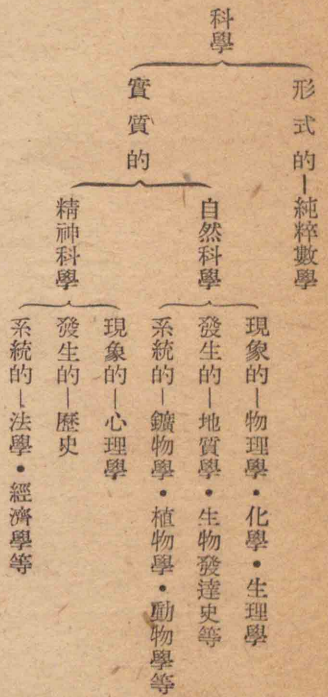 科學
形式的—純粹數學
實質的
自然科學
現象的—物理學・化學・生理學
發生的—地質學・生物發達史等
系統的—鑛物學・植物學・動物學等
精神科學
現象的—心理學
發生的—歷史
系統的—法學・經濟學等